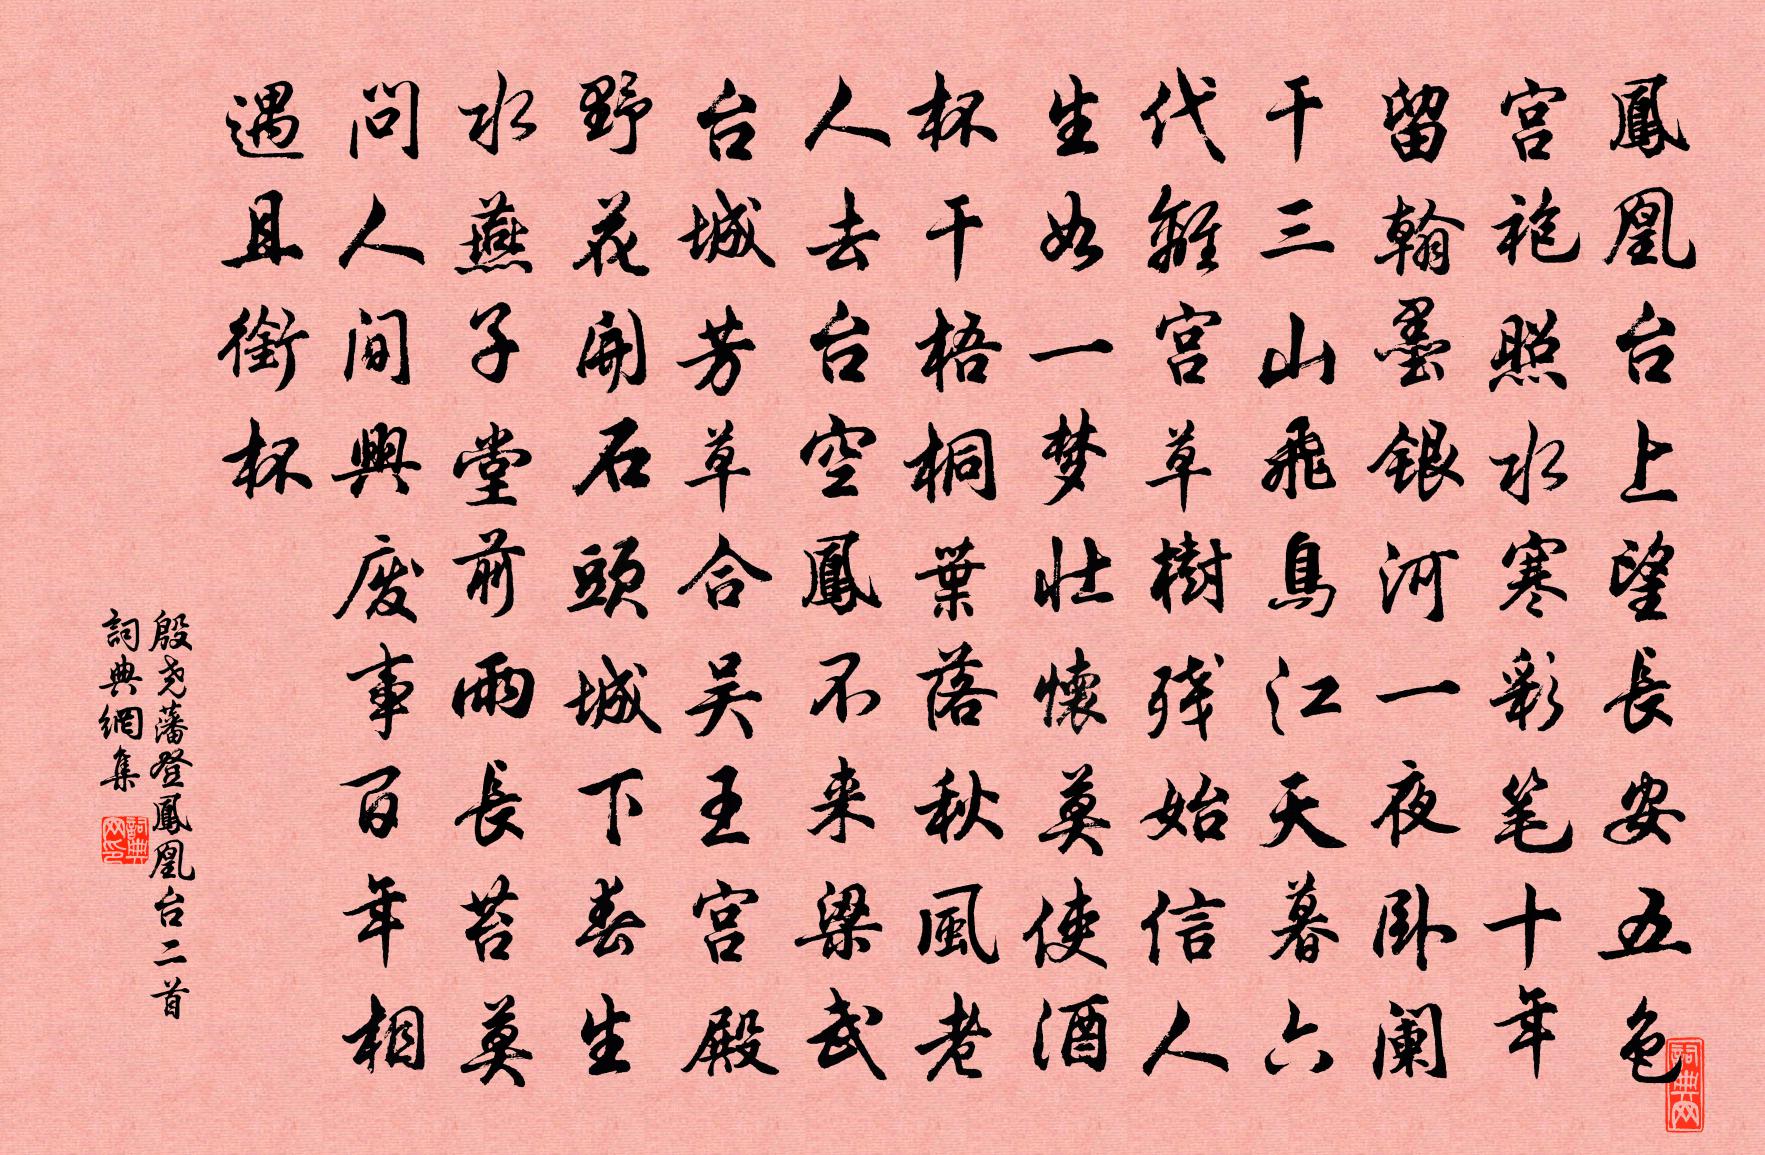 鳳凰台上望長安五色
宫袍照水寒彩笔十年
留翰墨银河一夜卧阑
干三山飛鳥江天暮六
代離宫草樹残始信人
生如一梦壮懷莫使酒
杯干梧桐葉落秋風老
人去台空鳳不来梁武
台城芳草合吴王宫殿
野花開石頭城下春生
水燕子堂前雨長苔莫
問人间興废事百年相
遇且銜杯
殷尧藩登鳳凰台二首
詞典網集
詞典网印
詞典网